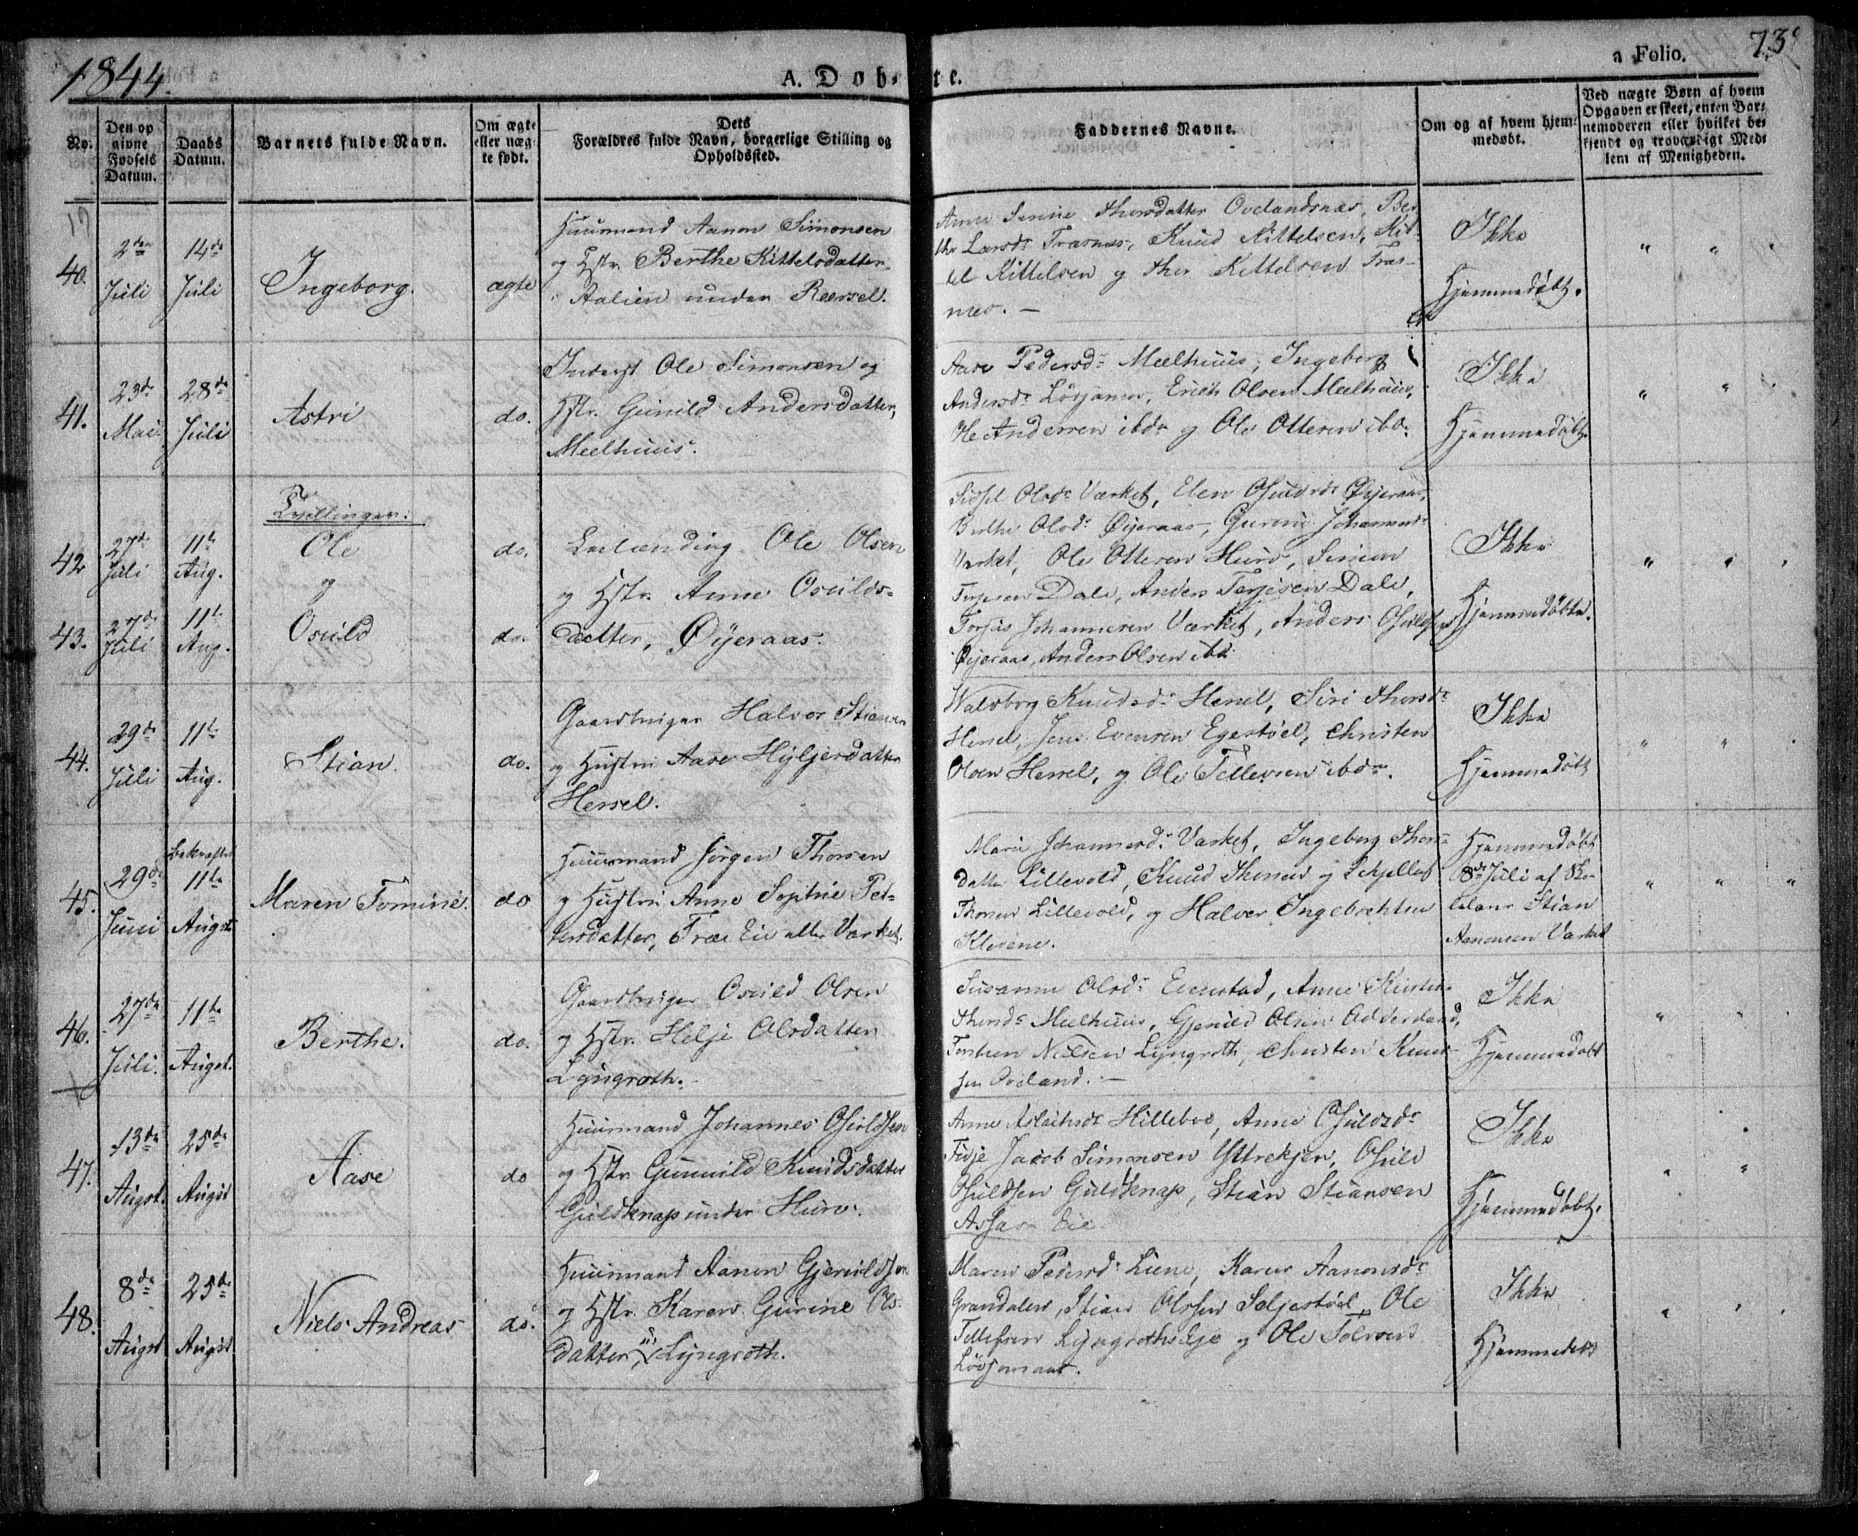 1844.
A. Døbte.
a Folio. 73
No.
Den opgivne Fødsels Datum.
Daabs Datum.
Barnets fulde Navn.
Om ægte eller uægte født.
Dets Forældres fulde Navn, borgerlige Stilling og Opholdssted.
Faddernes Navne.
Om og af hvem hjemmedøbt.
Ved uægte Børn af hvem Opgaven er skeet, enten Barnemoderen eller hvilket bekjendt og troværdigt Medlem af Menigheden.
19
40.
2den Juli
14de Juli
Ingeborg.
ægte
Huusmand Aanon Simonsen
og Hstr. Berthe Kittelsdatter
Aalien under Rærsel.
Anne Serine Thorsdatter Ovelandsnæs, Ber-
the Larsdr Træsnæs, Knud Kittelsen, Kit-
tel Kittelsen og Thor Kittelsen Træs-
næs. —
Ikke
Hjemmedøbt.
41.
23de Mai
28de Juli
Astri
do.
Inderst Ole Simonsen og
Hstr. Gunild Andersdatter,
Mælhuus.
Aase Pedersdr Mælhuus, Ingeborg
Andersdr Løvjomas, Erich Olsen Mælhuus,
Andersen ibdr og Ole Ottersen ibd.
Ikke
Hjemmedøbt
Tvillinger:
42
27de Juli
11te Aug.
Ole
og
do.
43.
27de Juli
11te Aug.
Osuld
do.
Leilænding Ole Olsen
og Hstr. Anne Osulds-
datter, Øyeraas.
Sidsel Olsdr Værket, Elen Osulsdr Øyeraas,
Berthe Olsdr Øyeraas, Gurine Johannesdr
Værket, Ole Ottersen Huus, Simon
Terjesen Dale, Anders Terjesen Dale,
Torjus Johannesen Værket, Anders Osuldsen
Øyeraas, Anders Olsen ibd
Ikke
Hjemmedøbte.
44.
29de Juli
11te Aug.
Stian.
do.
Gaardbruger Halvor Stiansen
og Hustru Aase Hyljersdatter
Hersel.
Walborg Knudsdr Hersel, Siri Thorsdr
Hersel, Jens Evensen Egestøel, Christen
Olsen Hersel, og Ole Tellevsen ibdm.
Ikke
Hjemmedøbt
45.
29de Juni
bekræftet
11te August
Maren Tomine.
do
Huusmand Jørgen Thorsen
og Hustru Anne Sophie Pet-
tersdatter, Træe Eie eller Værket.
Marie Johannesdr Værket, Ingeborg Thors-
datter Lillevold, Knud Thorsen og Kjelle
Thorsen Lillevold, og Halvor Ingebrethsen
Klevene.
Hjemmedøbt
8de Juli af Sko-
lelærer Stian
Aanonsen Værket
46.
27de Juli.
11te August.
Berthe.
do.
Gaardbruger Osuld Olsen
og Hstr. Helje Olsdatter
Lyngroth.
Susanne Olsdr Eienstad, Anne Kirstine
Thorsdr Mælhuus, Gjeruld Olsen Adderstand,
Torsten Nielsen Lyngroth, Christen Knud-
sen Oveland. —
Ikke
Hjemmedøbt
47.
13de August.
25de August
Aase
do
Huusmand Johannes Osuldsen
og Hstr. Gunnild Knudsdatter
Guldknap under Huus.
Anne Aslachsdr Hilleboe, Anne Osuldsdr
Fidje Jacob Simonsen Yttrekjen, Osuld
Osuldsen Guldknap, Stian Stiansen
Assas Eie
Ikke
Hjemmedøbt.
48.
8de August
25de August
Niels Andreas
do.
Huusmand Aanon Gjeruldsen
og Hstr. Karen Gurine Ols-
datter, u: Lyngroth.
Maren Pedersdr Liene, Karen Aanonsdr
Grandalen, Stian Olssen Seljestøel, Ole
Tellefsen Lyngroths Eje og Ole Tolvsen
Løvjomas.
Ikke
Hjemmedøbt